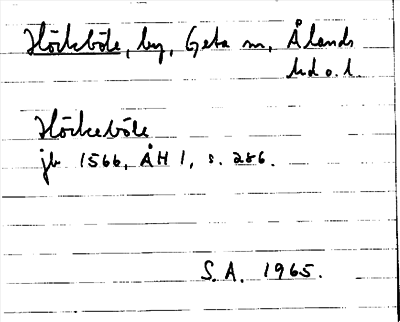 Höckböle, by, Geta sn, Ålands
hd o. l.
Höckeböle
jb 1566, ÅH 1, s. 286.
S.A. 1965.